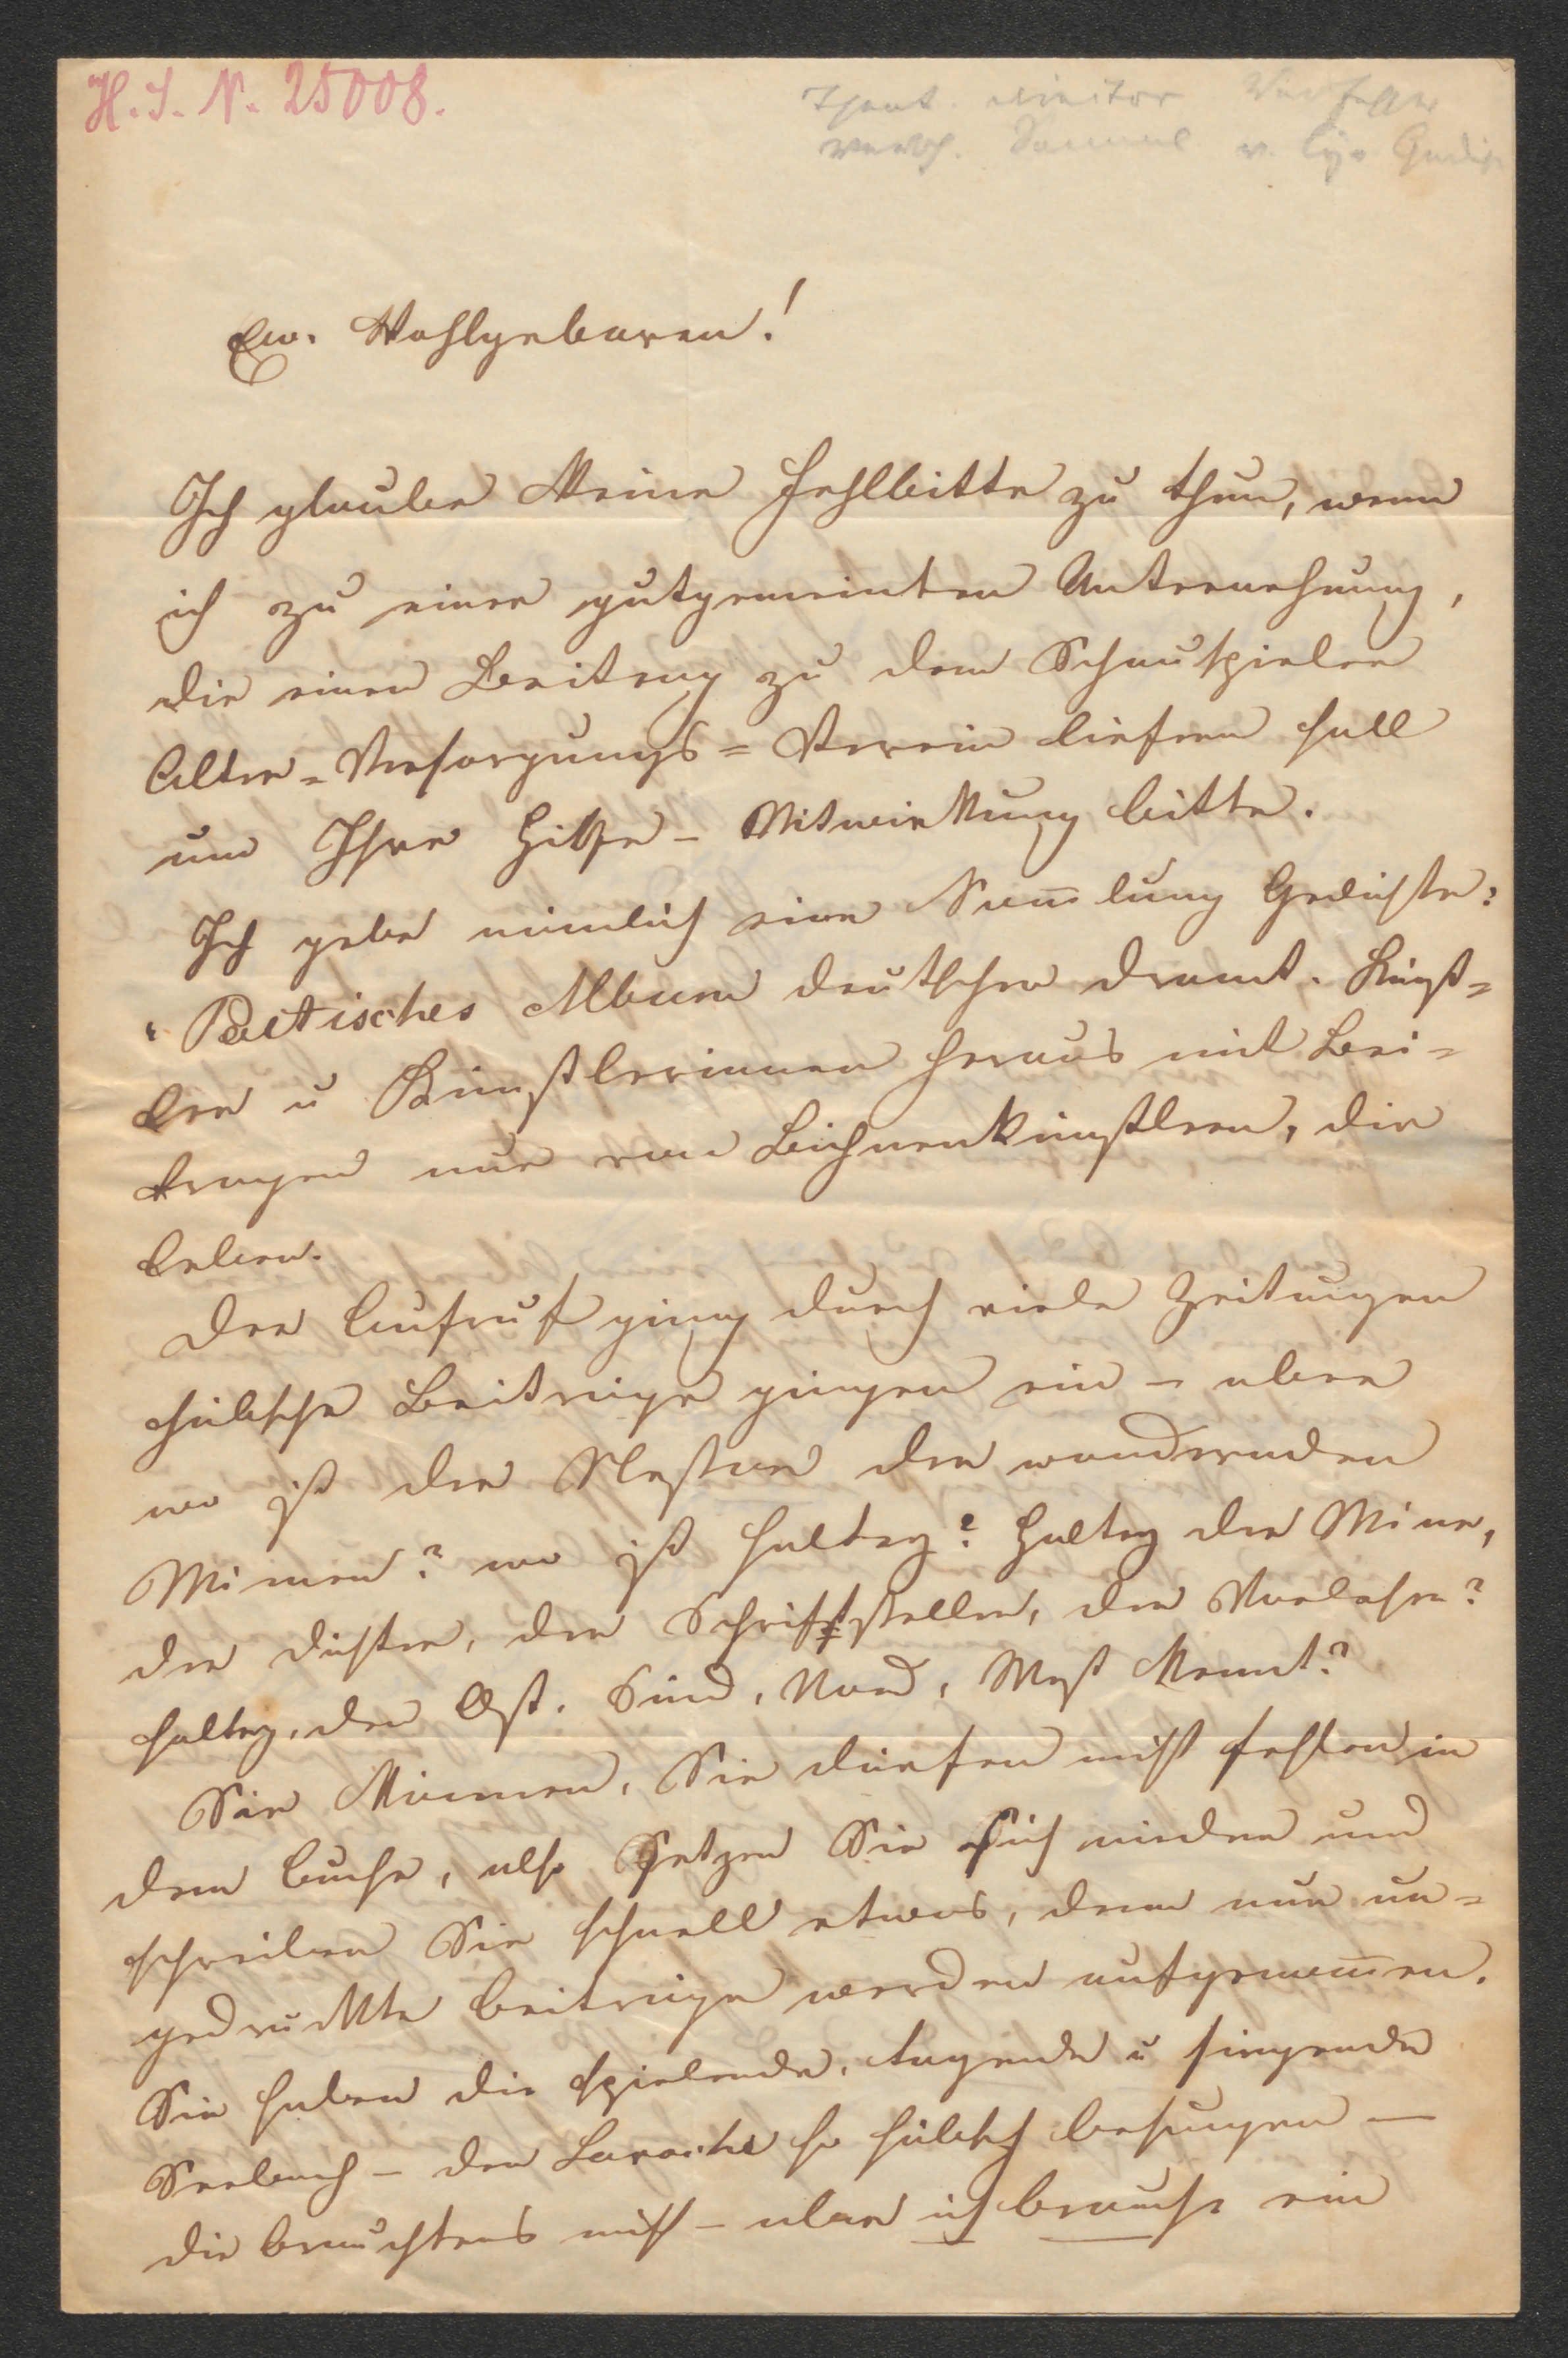 H. I. N. 25008.
Theat. Direktor
Ew. Wohlgeboren!
Ich glaube keine Fehlbitte zu thun, wenn
ich zu einer gutgemeinten Unternehmung,
die einen Beitrag zu dem Schauspieler
Alter-Versorgungs=Verein liefern soll
um Ihre Hilfe-Mitwirkung bitte.
Ich gebe nämlich eine Sam̅lung Gedichte:
"Poetisches Album deutscher dramat. Künst=
ler u Künstlerinnen heraus mit Bei=
tragen nur von Bühnenkünstlern, die
leben.
Der Aufruf ging durch viele Zeitungen
hübsche Beiträge gingen ein – aber
wo ist der Nestor der wandernden
Mimen? wo ist Holtey? Holtey der Mime,
der Dichter, der Schriftsteller, der Vorleser?
Holtey, den Ost, Süd, Nord, West kennt?
Sie können, Sie dürfen nicht fehlen in
dem Buche, also setzen Sie sich nieder und
schreiben Sie schnell etwas, denn nur un=
gedruckte Beiträge werden aufgenom̅en.
Sie haben die spielende, tagende u singende
Seebach – den Laroche so hübsch besungen –
die brauchtens nicht – aber ich brauche ein